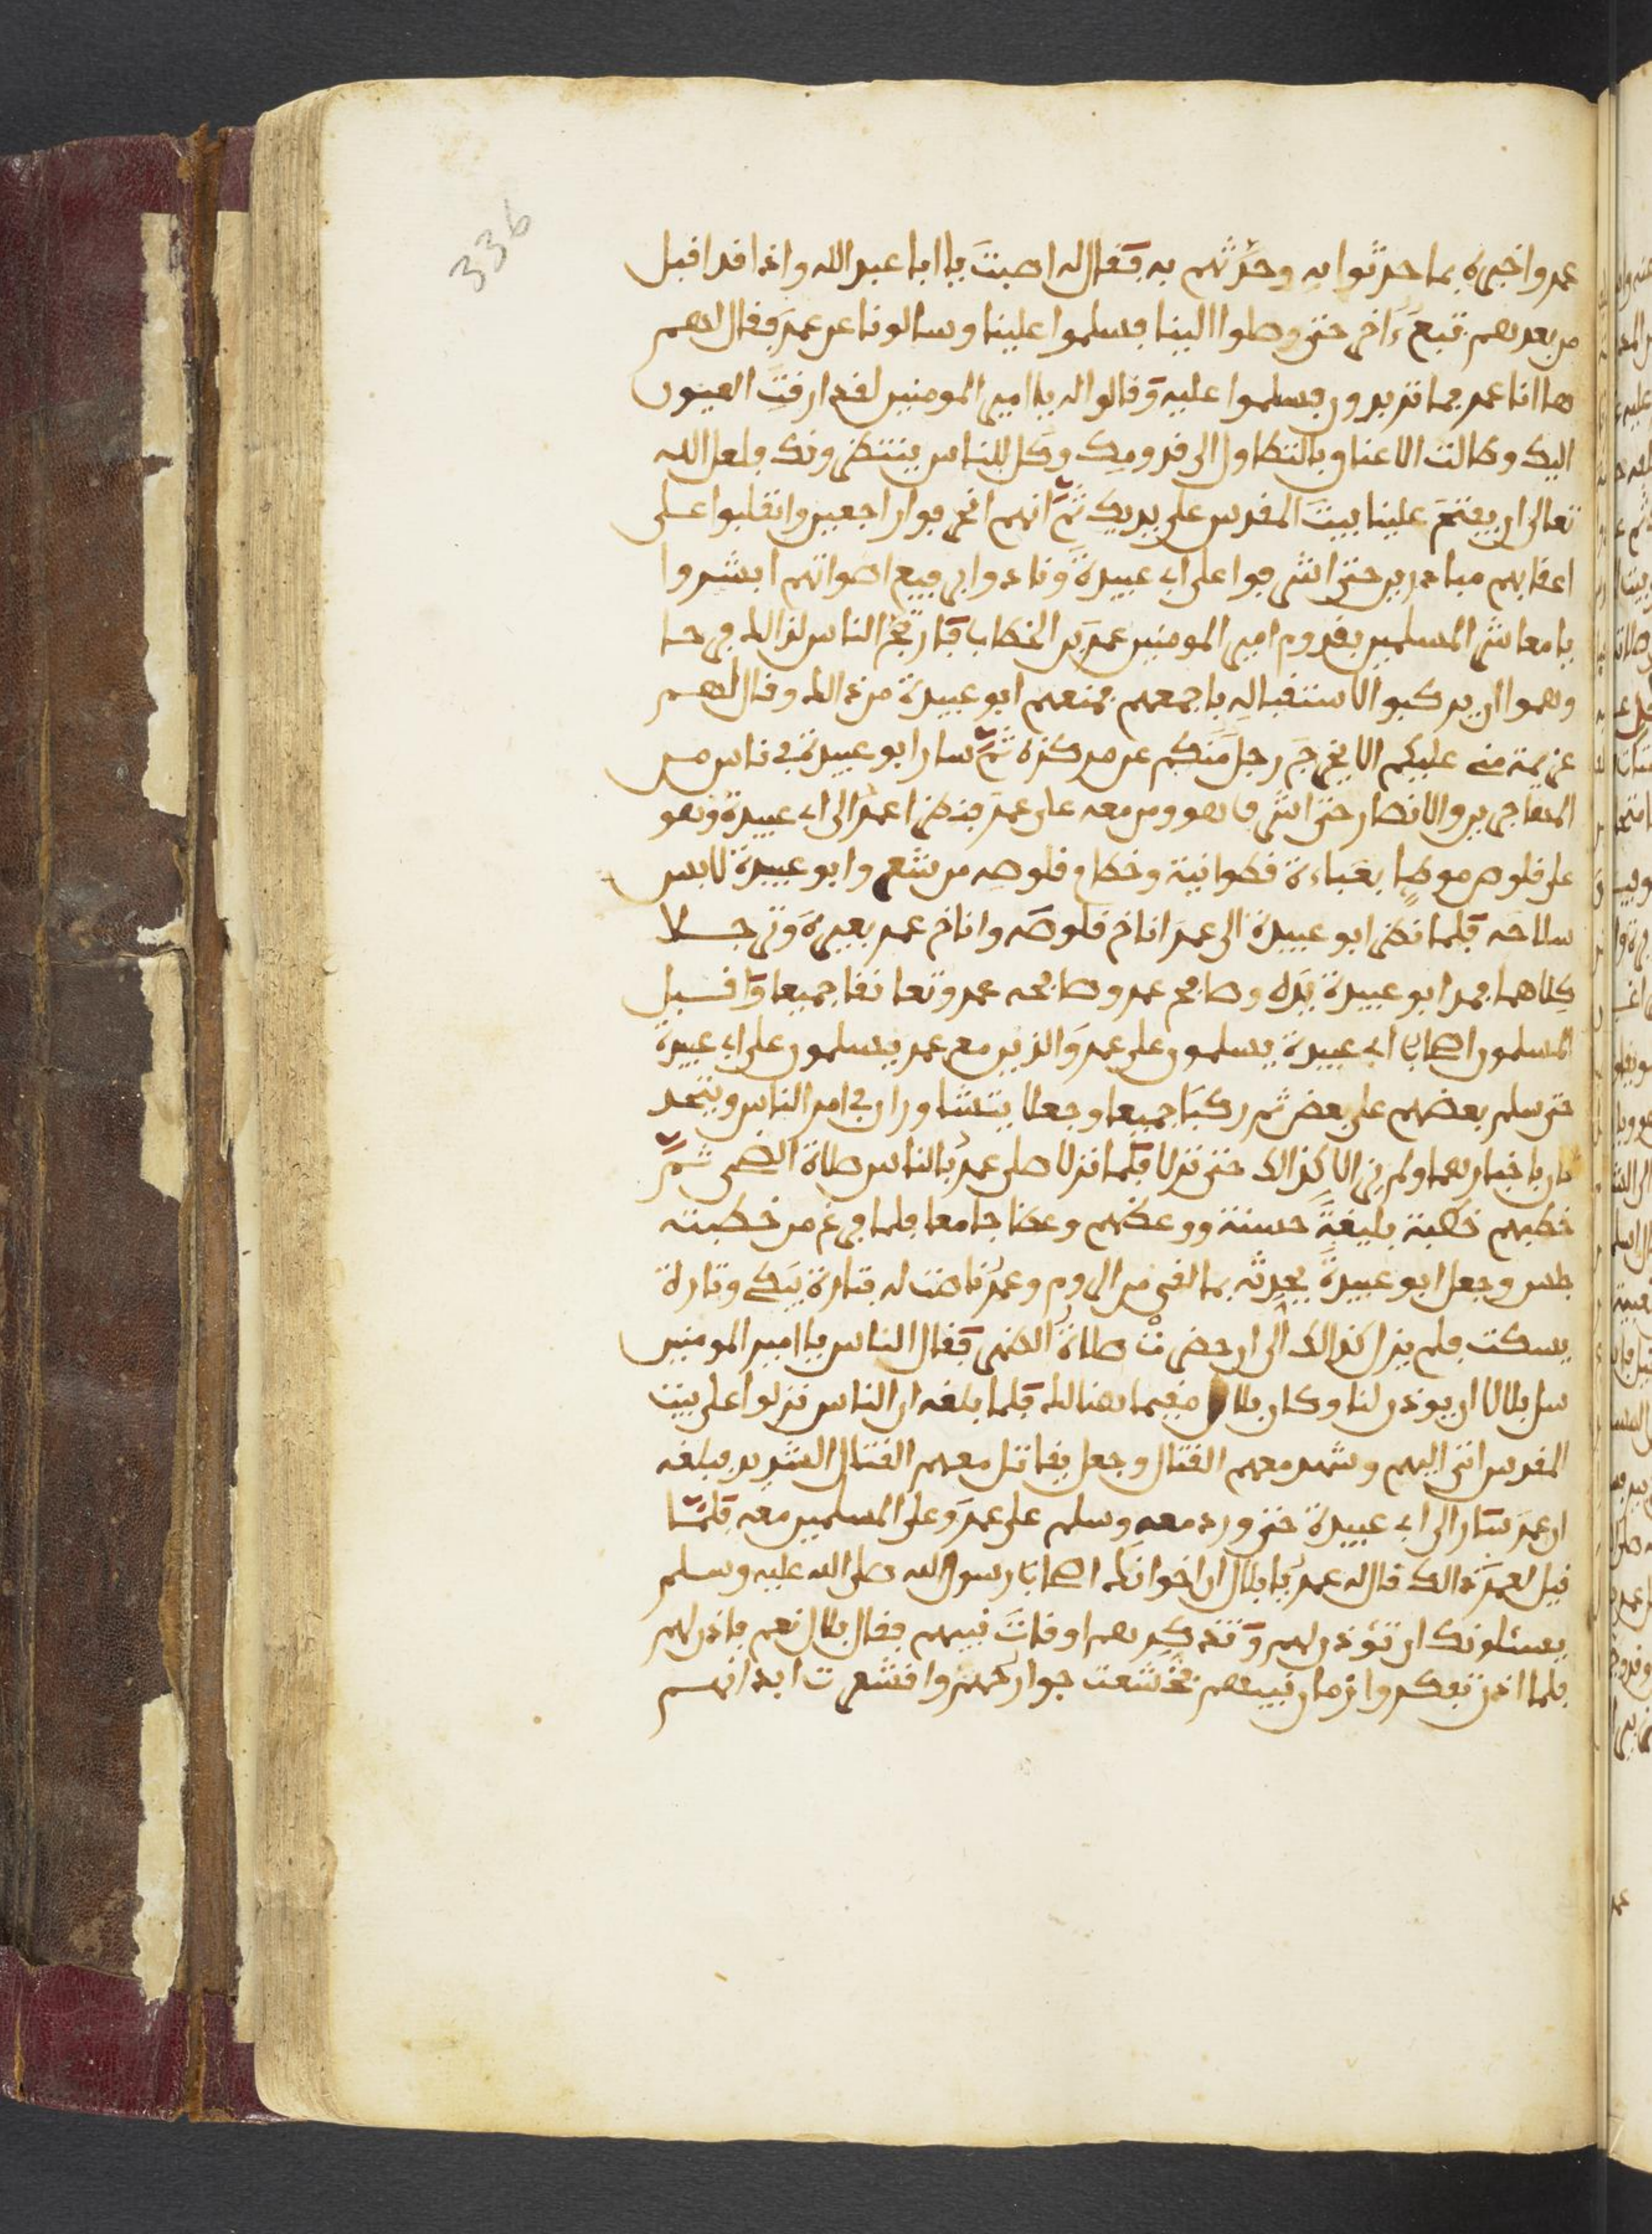 336
عمر واخبره بما حدثوا به وحدثهم به فقال له اصبت يا ابا عبد الله واذا قد اقبل
من بعدهم تبع ءاخر حتى وصلوا الينا فسلموا علينا وسالونا عن عمر فقال لهم
ها انا عمر فما تريدون فسلموا عليه وقالوا له يا امير المومنين لقد ارقت العيون
اليك وطالت الاعناق بالتطاول الى قدومك وكل الناس ينتظرونك فلعل الله
تعالى ان يفتح علينا بيت المقدس على يديك ثم انهم انحرفوا راجعين وانقلبوا على
اعقابهم مبادرين حتى اشرفوا على ابي عبيدة ونادوا برفيع اصواتهم ابشروا
يا معاشر المسلمين بقدوم امير المومنين عمر بن الخطاب فارتج الناس لذالك فرحا
وهموا ان يركبوا لاستقباله باجمعهم فمنعهم ابو عبيدة من ذالك وقال لهم
عزيمة مني عليكم الا يخرج رجل منكم عن مركزه ثم سار ابو عبيدة في ناس من
المهاجرين والانصار حتى اشرف هو ومن معه على عمر فنظر عمر الى ابي عبيدة وهو
على قلوص موطا بعباءة قطوانية وخطام قلوصه من شعر وابو عبيدة لابس
سلاحه فلما نظر ابو عبيدة الى عمر اناخ قلوصه واناخ عمر بعيره وترجلا
كلاهما فمد ابو عبيدة يده وصافح عمر وصافحه عمر وتعانقا جميعا واقبل
المسلمون اصحاب ابي عبيدة يسلمون على عمر والذين مع عمر يسلمون على ابي عبيدة
حتى سلم بعضهم على بعض ثم ركبا جميعا وجعلا يتشاوران في امر الناس ويتحد
ثان باخبارهما ولم يزالا كذالك حتى نزلا فلما نزلا صلى عمر بالناس صلاة الصبح ثم
خطبهم خطبة بليغة حسنة ووعظهم وعظا جامعا فلما فرغ من خطبته
جلس وجعل ابو عبيدة يحدثه بما لقي من الروم وعمر ناصت له فتارة يبكي وتارة
يسكت فلم يزل كذالك الى ان حضرت صلاة الظهر فقال الناس يا امير المومنين
سل بلالا ان يوذن لنا وكان بلال مقيما هنالك فلما بلغه ان الناس نزلوا على بيت
المقدس اتى اليهم وشهد معهم القتال وجعل يقاتل معهم القتال الشديد فبلغه
ان عمر سار الى ابي عبيدة حتى ورد معه وسلم على عمر وعلى المسلمين معه فلما
قيل لعمر ذالك قال له عمر يا بلال ان اخوانك اصحاب رسول الله صلى الله عليه وسلم
يسئلونك ان توذن لهم وتذكرهم اوقات نبيهم فقال بلال نعم فاذن لهم
فلما اذن تفكروا زمان نبيهم فخشعت جوارحهم واقشعرت ابدانهم